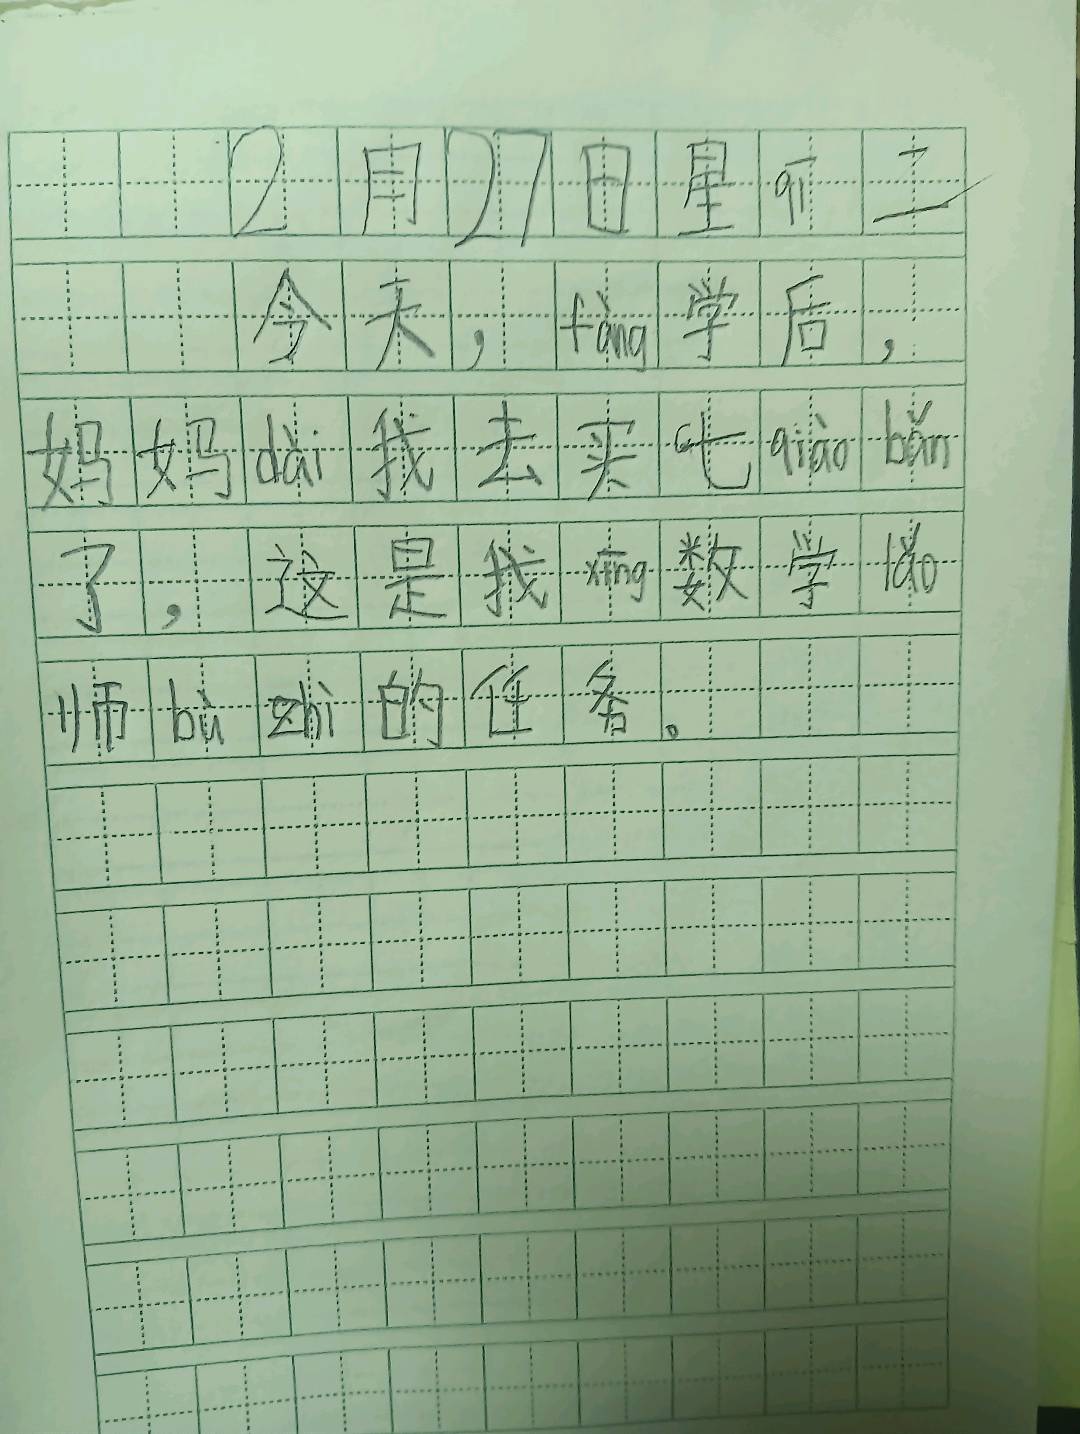 2月27日星qī二
今天，fàng学后，
妈妈dài我去买七qiǎo bǎn
了，这是我xīng数学lǎo
师bù zhì的任务。